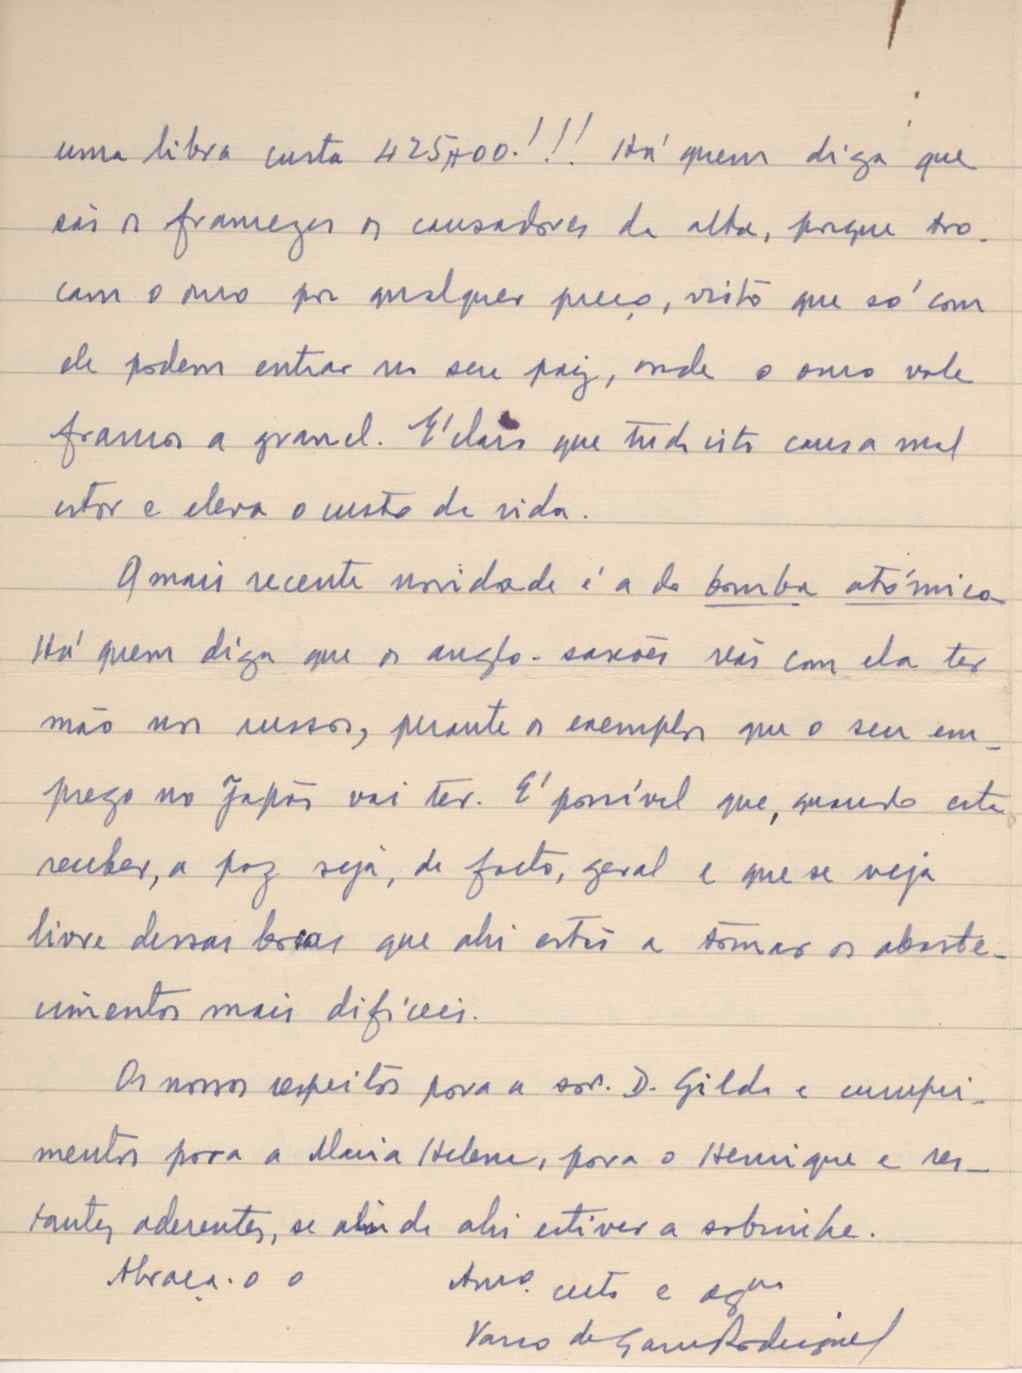 uma libra custa 425$00!!! Há quem diga que
são os francezes os causadores da alta, porque tro-
cam o ouro por qualquer preço, visto que só com
ele podem entrar no seu paiz, onde o ouro vale
francos a granel. É claro que tudo isto causa mal
estar e eleva o custo da vida.
A mais recente novidade é a da bomba atómica
Há quem diga que os anglo-saxões vão com ela ter
mão nos russos, perante os exemplos que o seu em-
prego no Japão vai ter. É possível que, quando esta
receber, a paz seja, de facto, geral e que se veja
livre dessas bocas que ahi estão a tornar os abaste-
cimentos mais difíceis.
Os nossos respeitos para a sr. D. Gilda e cumpri-
mentos para a Maria Helena, para o Henrique e res-
tantes aderentes, se ainda ahi estiver a sobrinha.
Abraça-o o Amo. certo e
Vasco de Gama Rodrigues